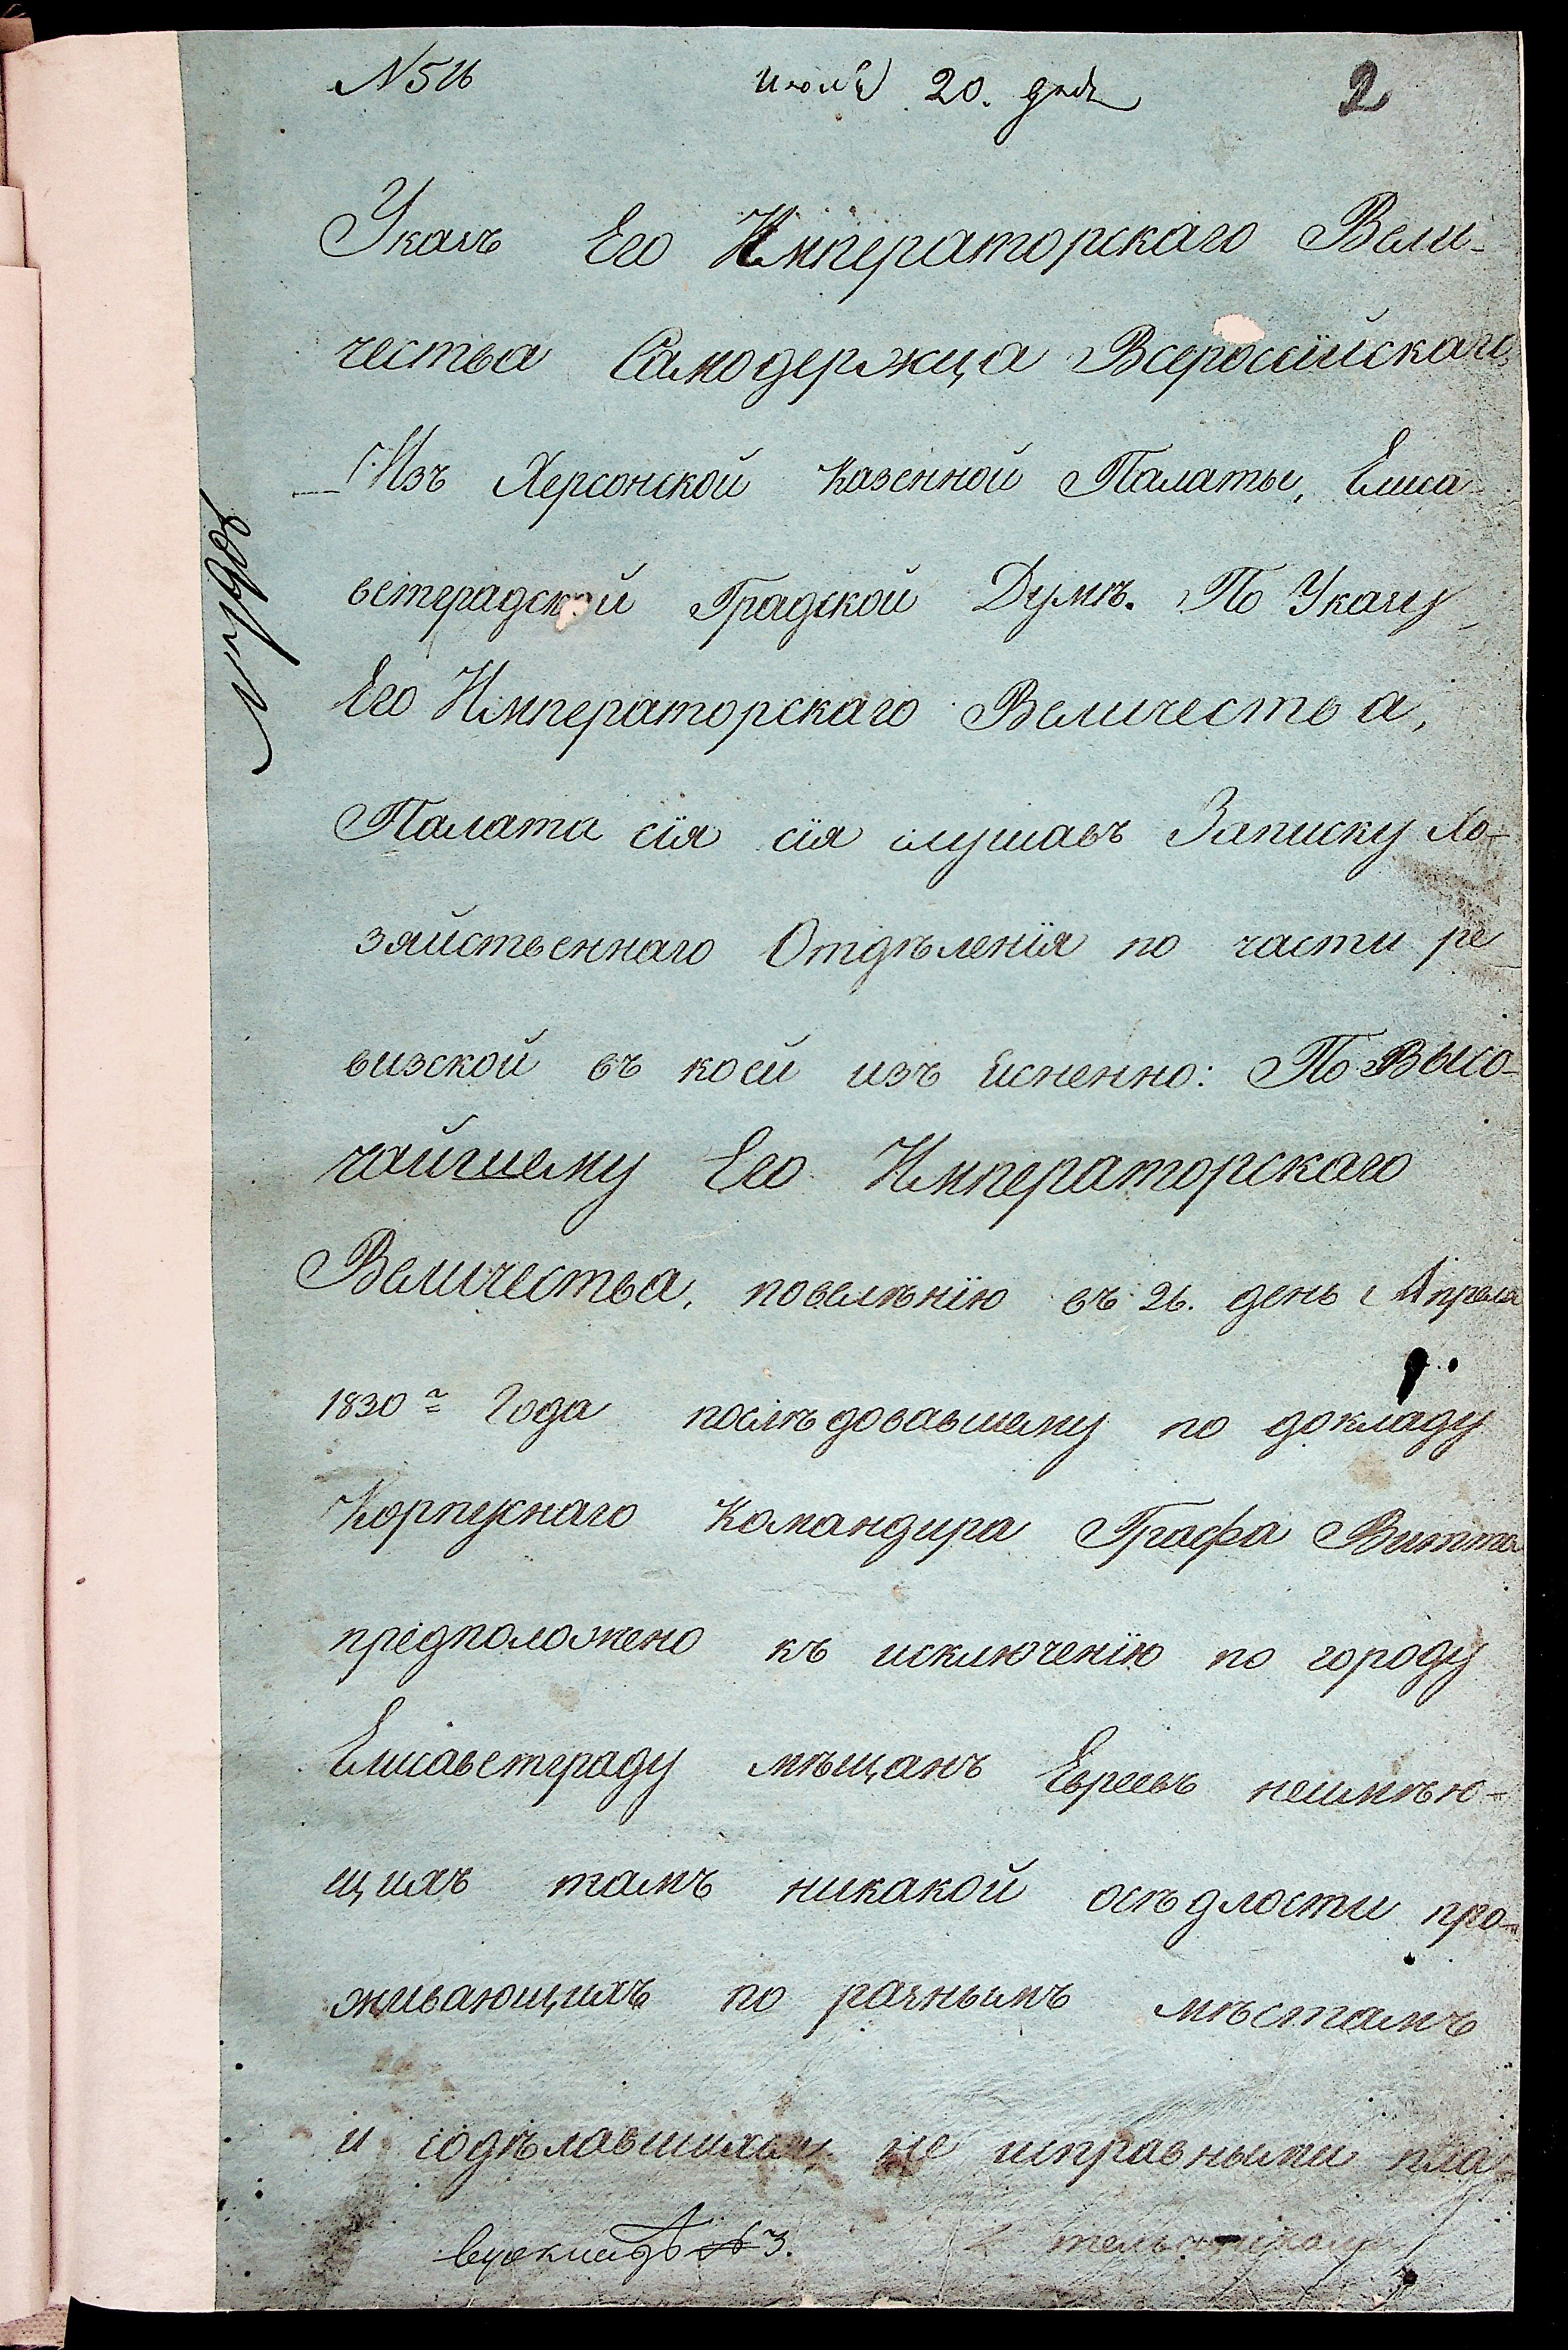 N 516 Июля 20. дня 2
Указъ Его Императорскаго Вели-
чества Самодержца Всеросїйскаго,
Изъ Херсонской Казенной Палаты, Елиса
ветградской Градской Думѣ. По Указу
Его Императорскаго Величества,
Палата сїя сїя слушавъ Записку Хо-
зяйственнаго Отдѣленїя по части ре
визской въ коей изъ Еснепно: По Высо-
чайшему Его Императорскаго
Величества, повелѣнїю въ 26. день Апреля
1830го Года послѣдовавшему по докладу
Корпуснаго Командира Графа Витта
предположено къ исключенїю по городу
Елисаветграду мѣщанъ Евреевъ неимѣю-
щихъ тамъ никакой осѣдлости про-
живающихъ по разнымъ мѣстамъ
и содѣлавшихся не исправными пла
тельщиками